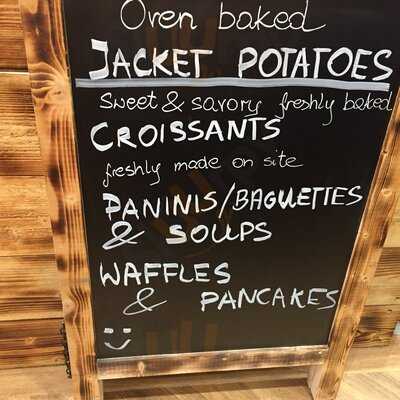 Oven baked
JACKET POTATOES
Sweet & savory freshly baked
CROISSANTS
freshly made on site
PANINIS/BAGUETTES
& SOUPS
WAFFLES
& PANCAKES
:)